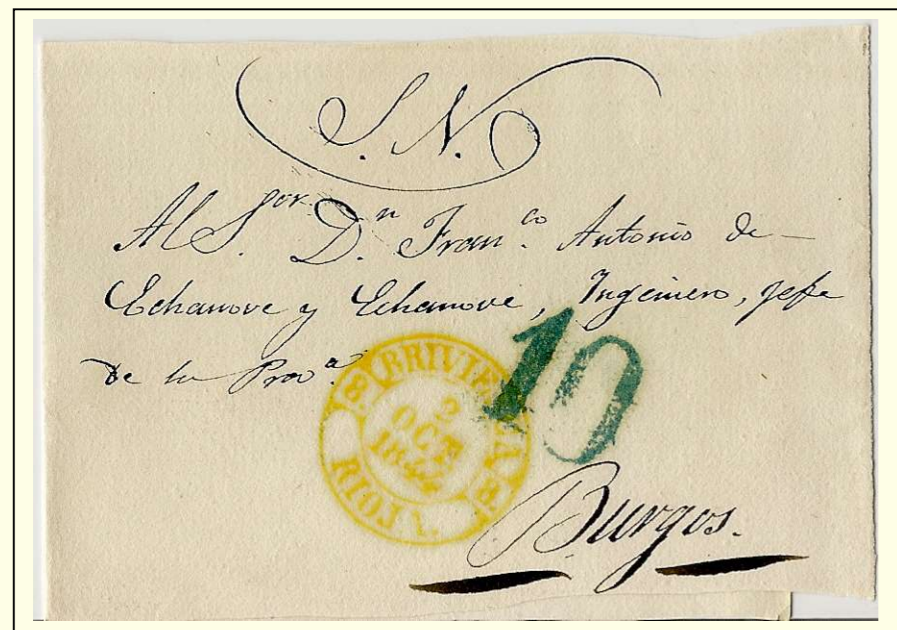 S. N.
Al Sor. Dn. Franco. Antonio de
Echanove y Echanove, Ingeniero, Jefe
de la Prova.
8 BRIVIESCA 8
2
OCT
1844
RIOJA
10
Burgos.